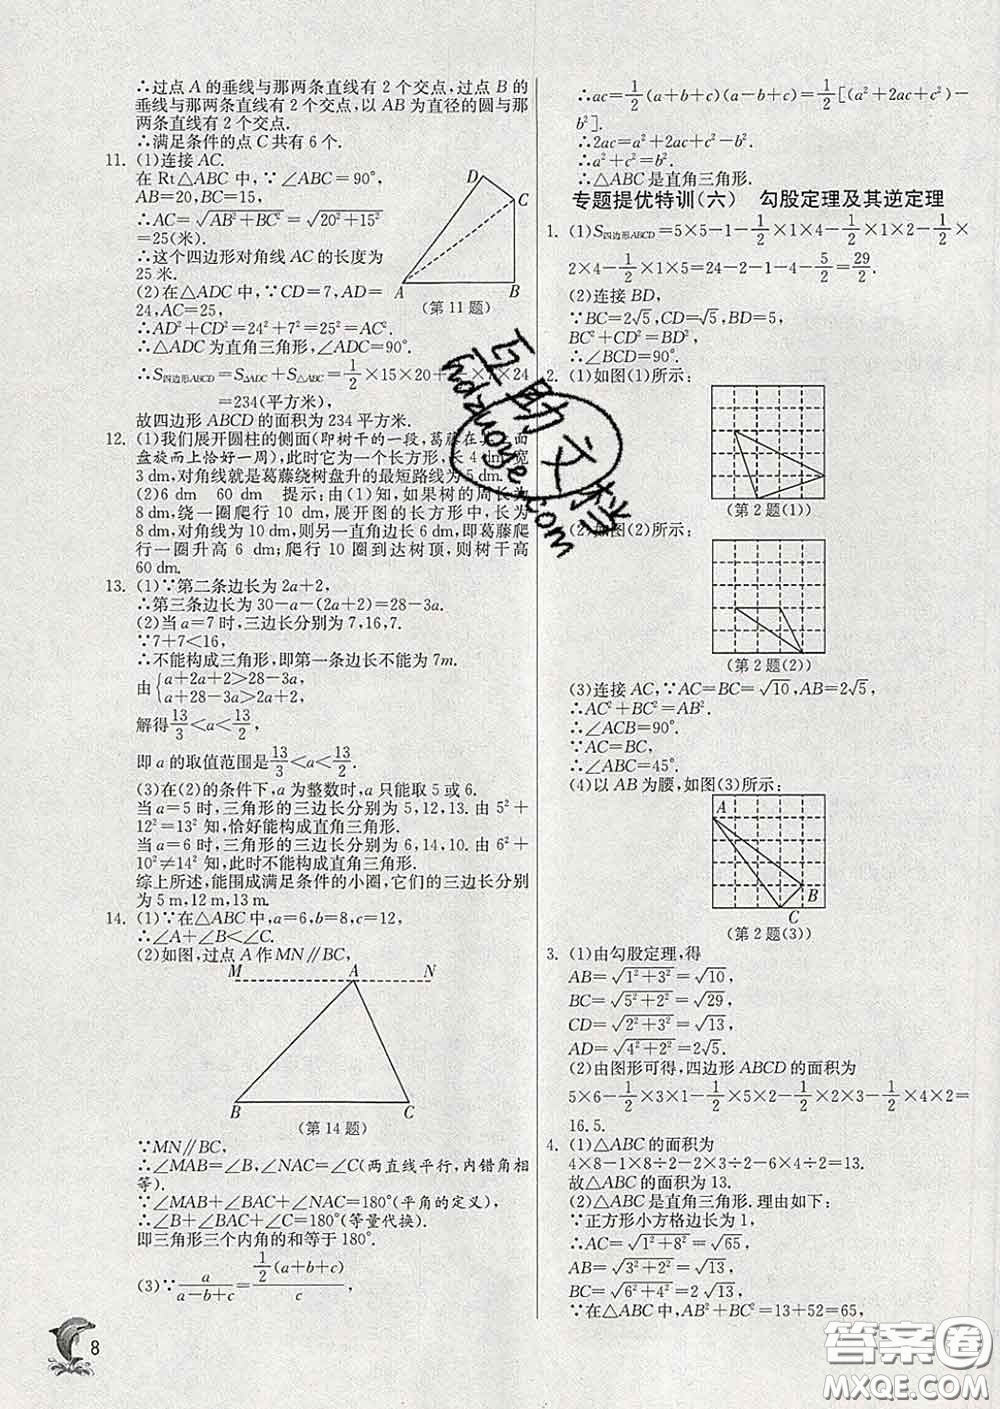 ∴过点 A 的垂线与那两条直线有 2 个交点,过点 B 的
垂线与那两条直线有 2 个交点,以 AB 为直径的圆与那
两条直线有 2 个交点.
∴满足条件的点 C 共有 6 个.
11. (1)连接 AC.
在 Rt△ABC 中,∵∠ABC=90°,
AB=20,BC=15,
∴AC=√(AB²+BC²)=√(20²+15²)
=25(米).
∴这个四边形对角线 AC 的长度为
25 米.
(2)在△ADC 中,∵CD=7,AD=
24,AC=25,
∴AD²+CD²=24²+7²=25²=AC².
∴△ADC 为直角三角形,∠ADC=90°.
∴S四边形ABCD=S△ADC+S△ABC=1/2×15×20+ ×7×24
=234(平方米),
故四边形 ABCD 的面积为 234 平方米.
D
C
A
B
(第 11 题)
12. (1)我们展开圆柱的侧面(即树干的一段,葛藤在 面
盘旋而上恰好一周),此时它为一个长方形,长 4 dm 宽
3 dm,对角线就是葛藤绕树盘升的最短路线为 5 dm.
(2)6 dm 60 dm 提示:由(1)知,如果树的周长为
8 dm,绕一圈爬行 10 dm,展开图的长方形中,长为
8 dm,对角线为 10 dm,则另一直角边长 6 dm,即葛藤爬
行一圈升高 6 dm;爬行 10 圈到达树顶,则树干高
60 dm.
13. (1)∵第二条边长为 2a+2,
∴第三条边长为 30-a-(2a+2)=28-3a.
(2)当 a=7 时,三边长分别为 7,16,7.
∵7+7<16,
∴不能构成三角形,即第一条边长不能为 7m.
由{a+2a+2>28-3a,
a+28-3a>2a+2,
解得13/3<a<13/2,
即 a 的取值范围是13/3<a<13/2.
(3)在(2)的条件下,a 为整数时,a 只能取 5 或 6.
当 a=5 时,三角形的三边长分别为 5,12,13.由 5²+
12²=13² 知,恰好能构成直角三角形.
当 a=6 时,三角形的三边长分别为 6,14,10.由 6²+
10²≠14² 知,此时不能构成直角三角形.
综上所述,能围成满足条件的小圈,它们的三边长分别
为 5 m,12 m,13 m.
14. (1)∵在△ABC 中,a=6,b=8,c=12,
∴∠A+∠B<∠C.
(2)如图,过点 A 作 MN∥BC,
M A N
B C
(第 14 题)
∵MN∥BC,
∴∠MAB=∠B,∠NAC=∠C(两直线平行,内错角相
等).
∵∠MAB+∠BAC+∠NAC=180°(平角的定义),
∴∠B+∠BAC+∠C=180°(等量代换).
即三角形三个内角的和等于 180°.
(3)∵a/(a-b+c)=1/2(a+b+c)/c,
8
∴ac=1/2(a+b+c)(a-b+c)=1/2[(a²+2ac+c²)-
b²].
∴2ac=a²+2ac+c²-b².
∴a²+c²=b².
∴△ABC 是直角三角形.
专题提优特训(六) 勾股定理及其逆定理
1. (1)S四边形ABCD=5×5-1-1/2×1×4-1/2×1×2-1/2×
2×4-1/2×1×5=24-2-1-4-5/2=29/2.
(2)连接 BD,
∵BC=2√5,CD=√5,BD=5,
BC²+CD²=BD²,
∴∠BCD=90°.
2. (1)如图(1)所示:
(第 2 题(1))
(2)如图(2)所示:
(第 2 题(2))
(3)连接 AC,∵AC=BC=√10,AB=2√5,
∴AC²+BC²=AB².
∴∠ACB=90°.
∵AC=BC,
∴∠ABC=45°.
(4)以 AB 为腰,如图(3)所示:
A
B
C
(第 2 题(3))
3. (1)由勾股定理,得
AB=√(1²+3²)=√10,
BC=√(5²+2²)=√29,
CD=√(2²+3²)=√13,
AD=√(4²+2²)=2√5.
(2)由图形可得,四边形 ABCD 的面积为
5×6-1/2×1×3-1/2×5×2-1/2×2×3-1/2×4×2=
16.5.
4. (1)△ABC 的面积为
4×8-1×8÷2-2×3÷2-6×4÷2=13.
故△ABC 的面积为 13.
(2)△ABC 是直角三角形.理由如下:
∵正方形小方格边长为 1,
∴AC=√(1²+8²)=√65,
AB=√(3²+2²)=√13,
BC=√(6²+4²)=2√13,
∵在△ABC 中,AB²+BC²=13+52=65,
互助文档
hdzuoye.com
答案圈
MXQE.COM